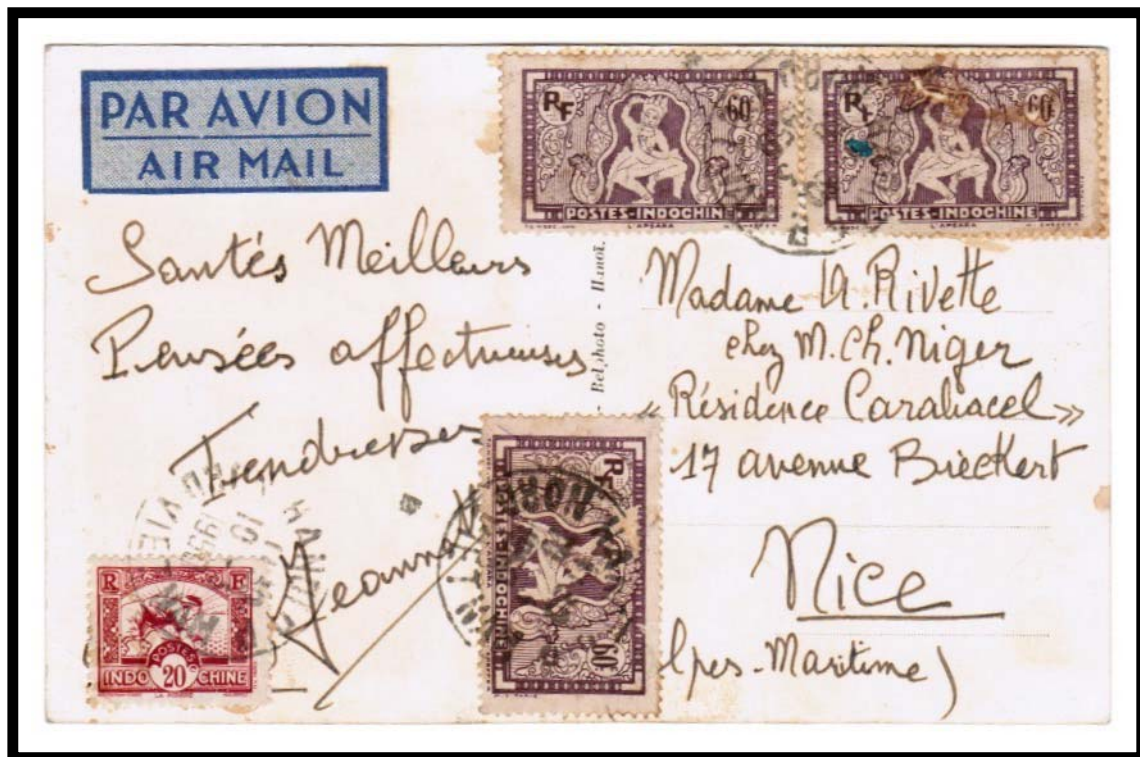 PAR AVION
AIR MAIL
RF
60
POSTES-INDOCHINE
L'APSARA
RF
60
POSTES-INDOCHINE
L'APSARA
Santés Meilleurs
Pensées affectueuses
Tendresses
Jeannot
- Belphoto - Hanoï.
Madame A. Rivette
chez M. Ch. Niger
« Résidence Carabacel »
17 avenue Bieckert
Nice
lpes-Maritime)
RF
60
POSTES-INDOCHINE
L'APSARA
HANOI
R F
POSTES
INDO 20 CHINE